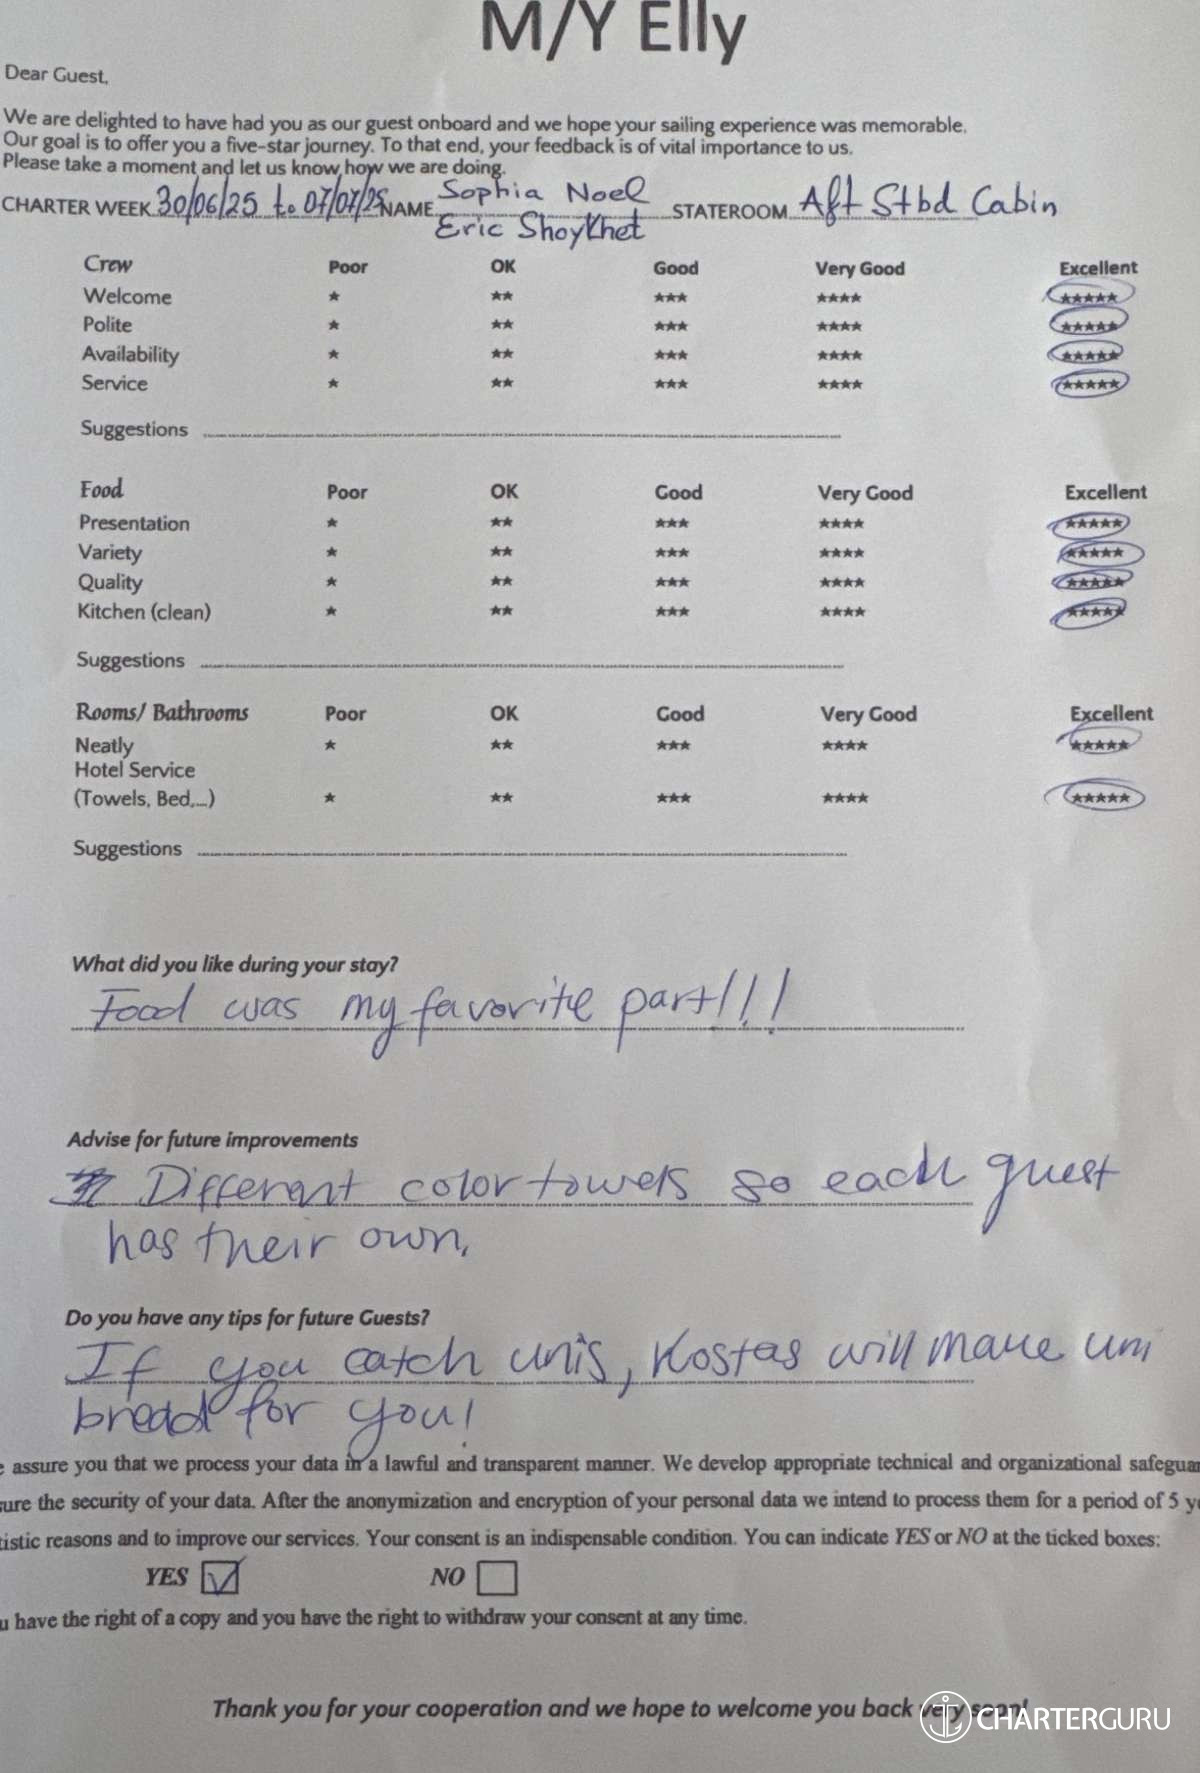 M/Y Elly
Dear Guest,
We are delighted to have had you as our guest onboard and we hope your sailing experience was memorable.
Our goal is to offer you a five-star journey. To that end, your feedback is of vital importance to us.
Please take a moment and let us know how we are doing.
CHARTER WEEK 30/06/25 to 07/07/25 NAME Sophia Noel STATEROOM Aft Stbd Cabin
Eric Shoykhet
Crew Poor OK Good Very Good Excellent
Welcome ★ ★★ ★★★ ★★★★ ★★★★★
Polite ★ ★★ ★★★ ★★★★ ★★★★★
Availability ★ ★★ ★★★ ★★★★ ★★★★★
Service ★ ★★ ★★★ ★★★★ ★★★★★
Suggestions
Food Poor OK Good Very Good Excellent
Presentation ★ ★★ ★★★ ★★★★ ★★★★★
Variety ★ ★★ ★★★ ★★★★ ★★★★★
Quality ★ ★★ ★★★ ★★★★ ★★★★★
Kitchen (clean) ★ ★★ ★★★ ★★★★ ★★★★★
Suggestions
Rooms/ Bathrooms Poor OK Good Very Good Excellent
Neatly ★ ★★ ★★★ ★★★★ ★★★★★
Hotel Service
(Towels, Bed,...) ★ ★★ ★★★ ★★★★ ★★★★★
Suggestions
What did you like during your stay?
Food was my favorite part!!!
Advise for future improvements
Different color towels so each guest
has their own.
Do you have any tips for future Guests?
If you catch unis, Kostas will make uni
bread for you!
assure you that we process your data in a lawful and transparent manner. We develop appropriate technical and organizational
the security of your data. After the anonymization and encryption of your personal data we intend to process them for a period of 5
reasons and to improve our services. Your consent is an indispensable condition. You can indicate YES or NO at the ticked boxes:
YES NO
have the right of a copy and you have the right to withdraw your consent at any time.
Thank you for your cooperation and we hope to welcome you back very soon!
CHARTERGURU